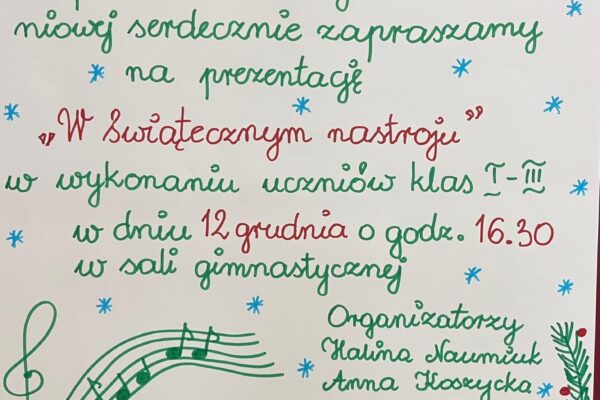 niowej serdecznie zapraszamy
na prezentację
„W Świątecznym nastroju”
w wykonaniu uczniów klas I-III
w dniu 12 grudnia o godz. 16.30
w sali gimnastycznej
Organizatorzy
Halina Naumiuk
Anna Koszycka